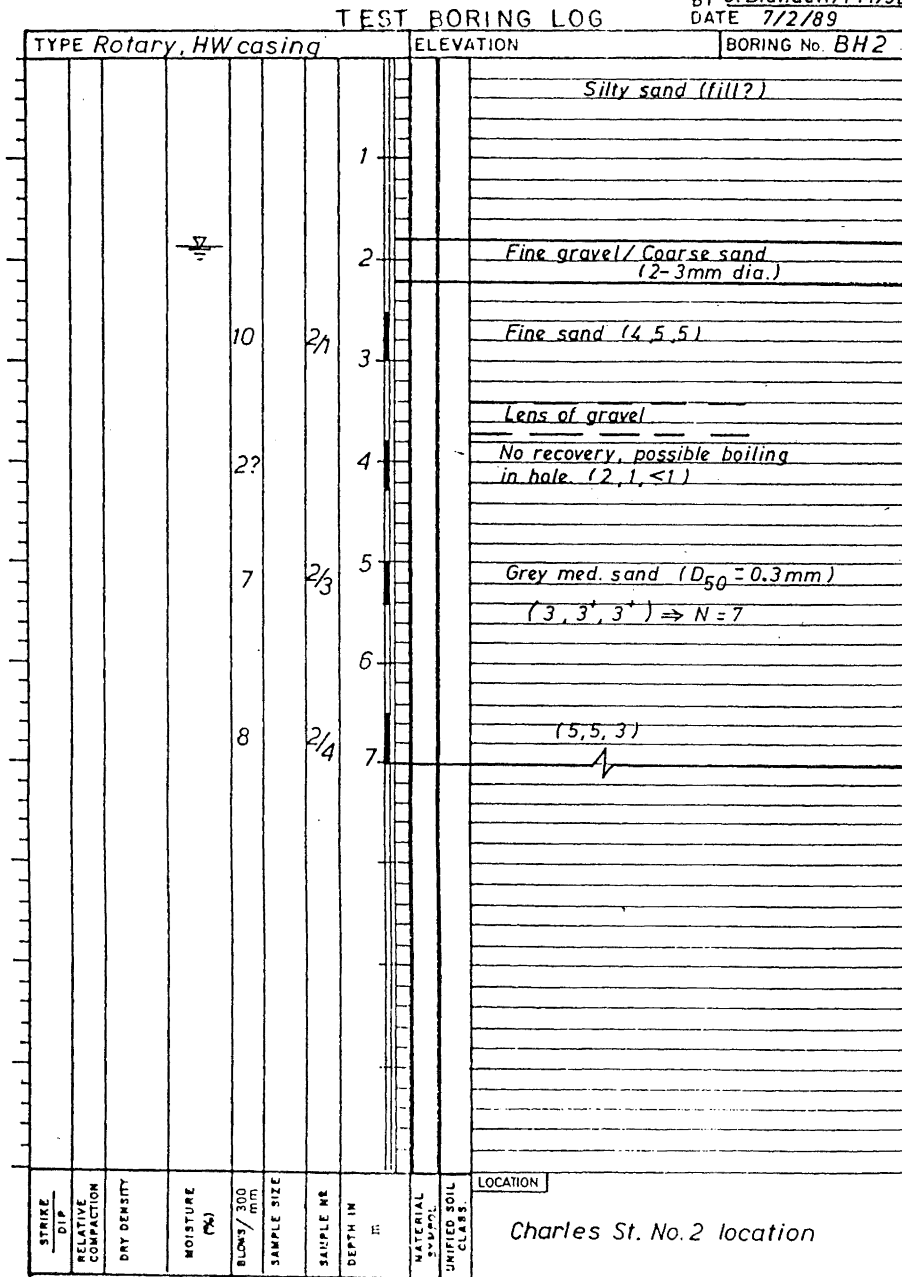 TEST BORING LOG
BY
DATE 7/2/89
TYPE Rotary, HW casing
ELEVATION
BORING No. BH2
Silty sand (fill?)
1
2
Fine gravel/ Coarse sand
(2-3mm dia.)
10 2/1
Fine sand (4,5,5)
3
Lens of gravel
2? 4
No recovery, possible boiling
in hole. (2,1,<1)
5
7 2/3
Grey med. sand (D50 = 0.3mm)
(3, 3+, 3+) ⇒ N = 7
6
8 2/4
(5,5,3)
7
STRIKE
DIP
RELATIVE
COMPACTION
DRY DENSITY
MOISTURE
(%)
BLOWS/ 300
mm
SAMPLE SIZE
SAMPLE NR
DEPTH IN
m
MATERIAL
SYMBOL
UNIFIED SOIL
CLASS.
LOCATION
Charles St. No.2 location